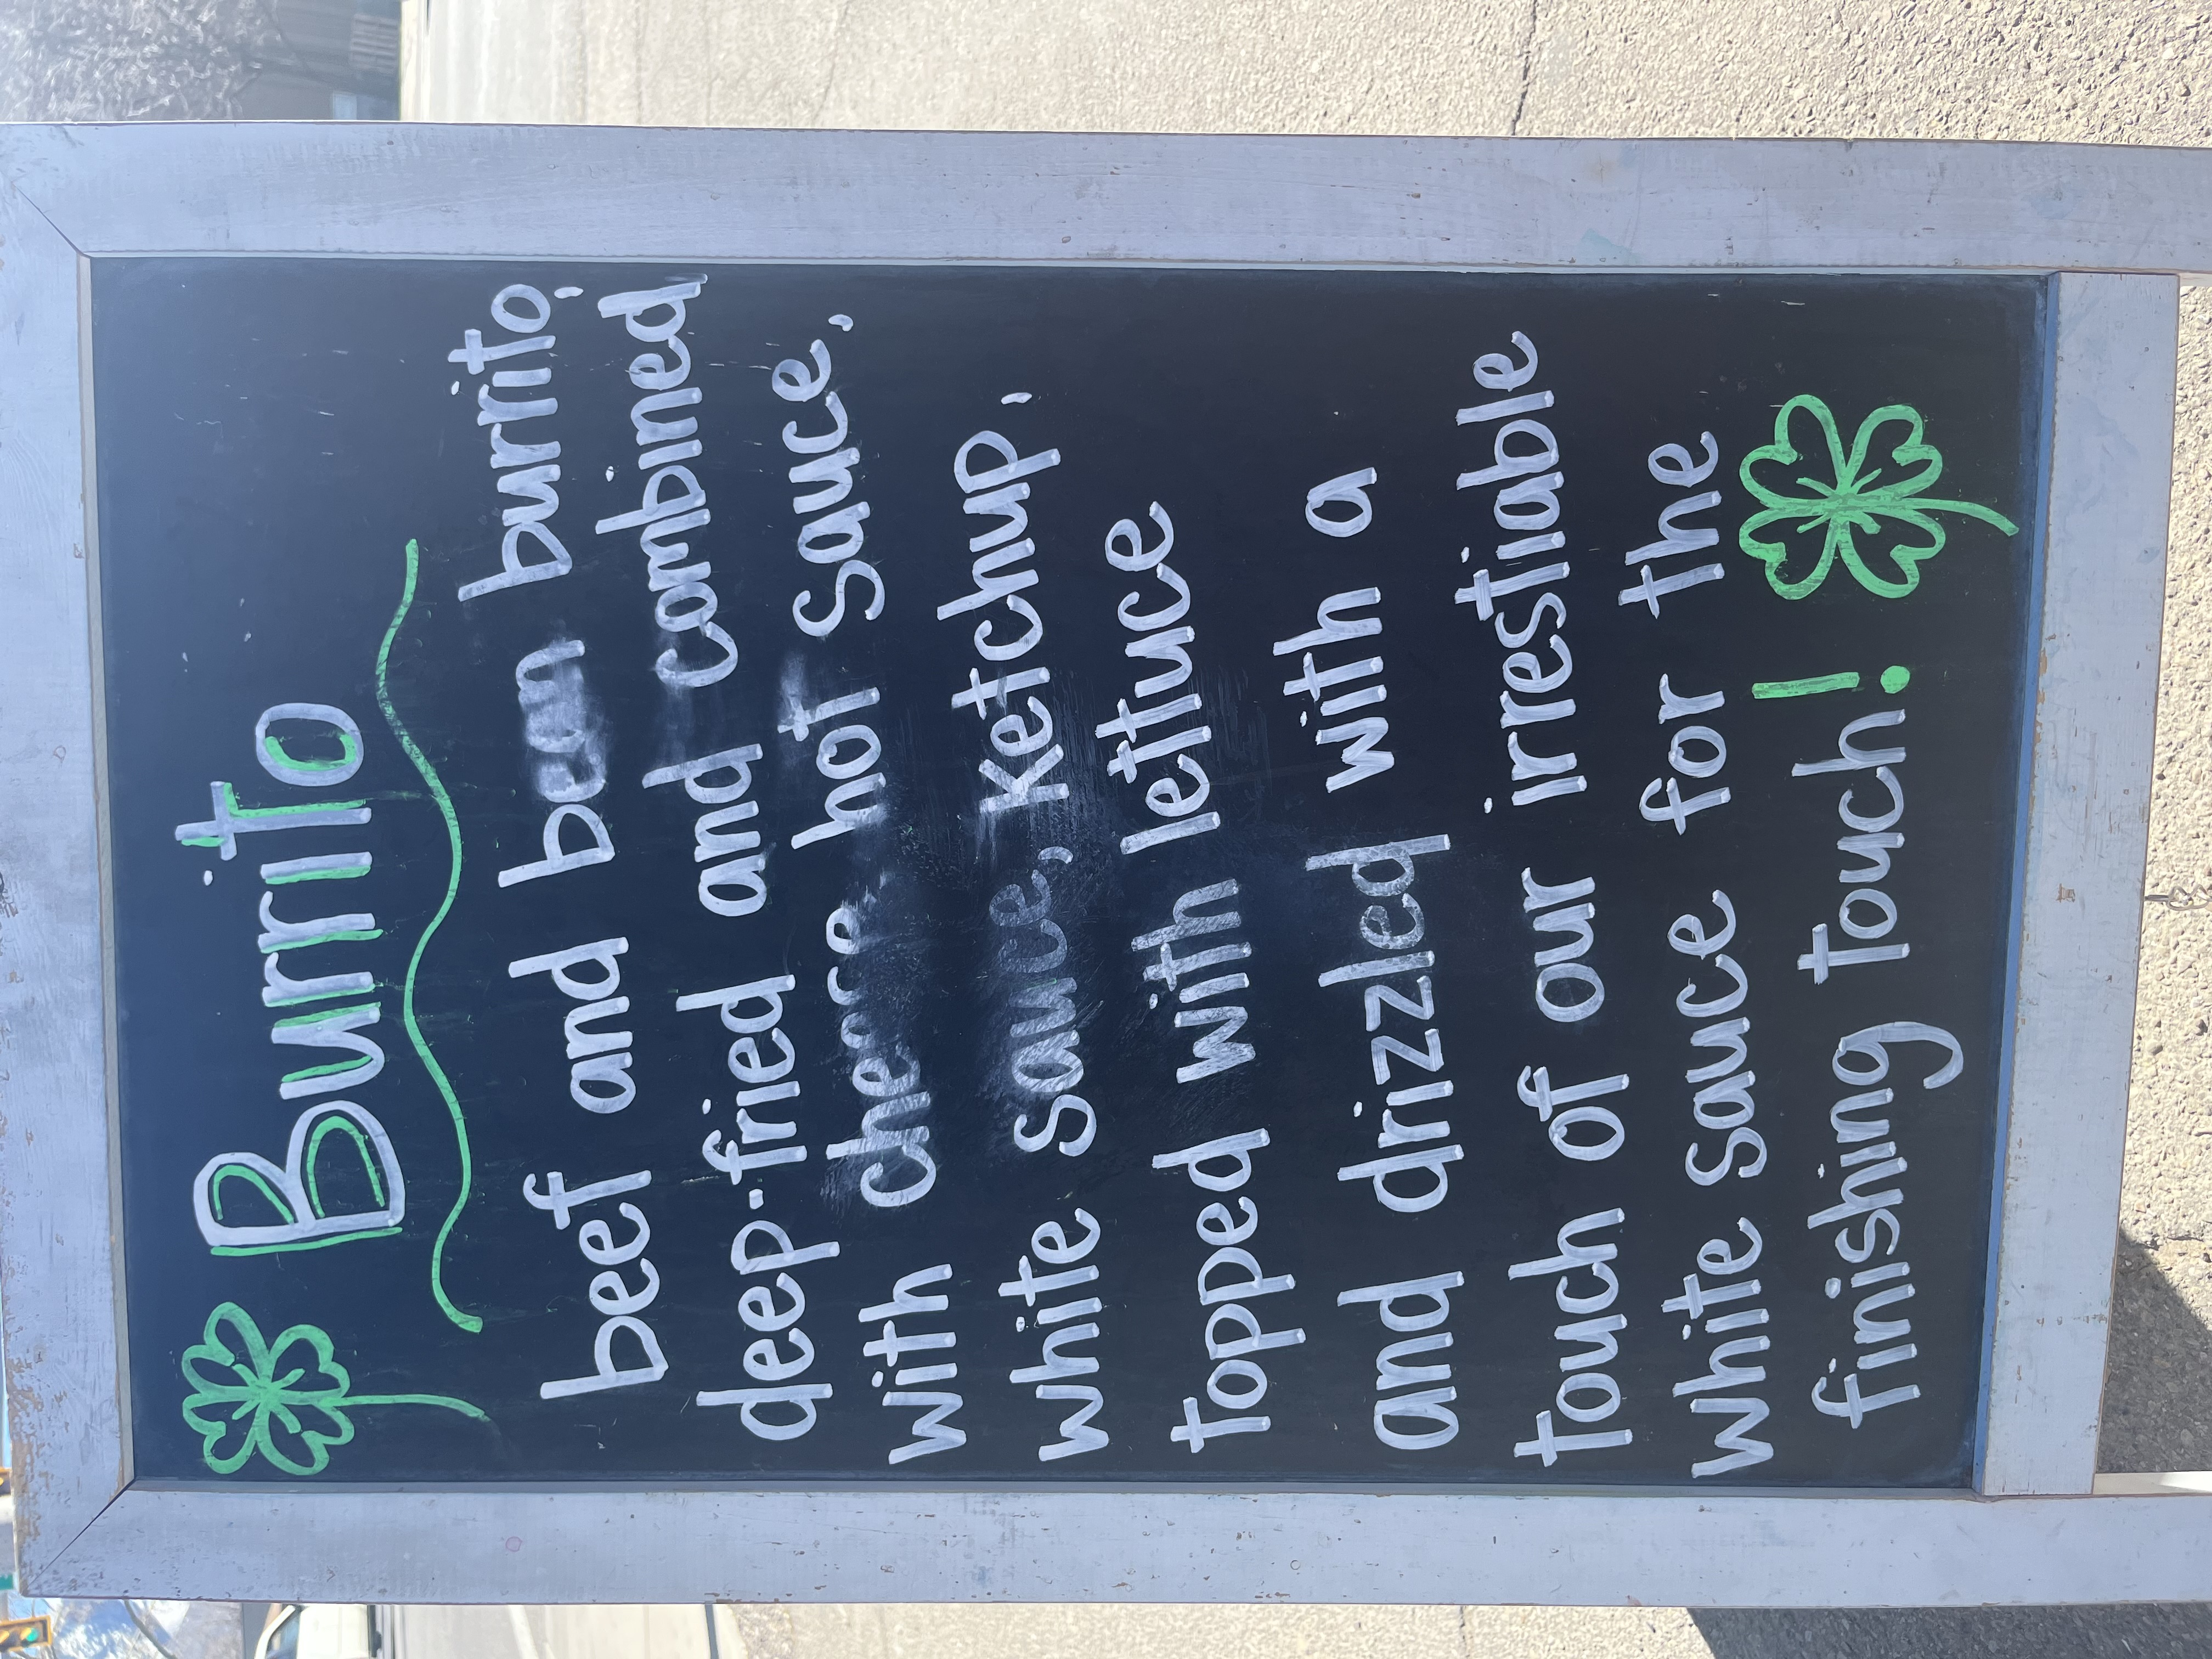 Burrito
beef and bean burrito,
deep-fried and combined
with cheese hot sauce,
white sauce, ketchup,
topped with lettuce
and drizzled with a
touch of our irrestiable
white sauce for the
finishing touch!